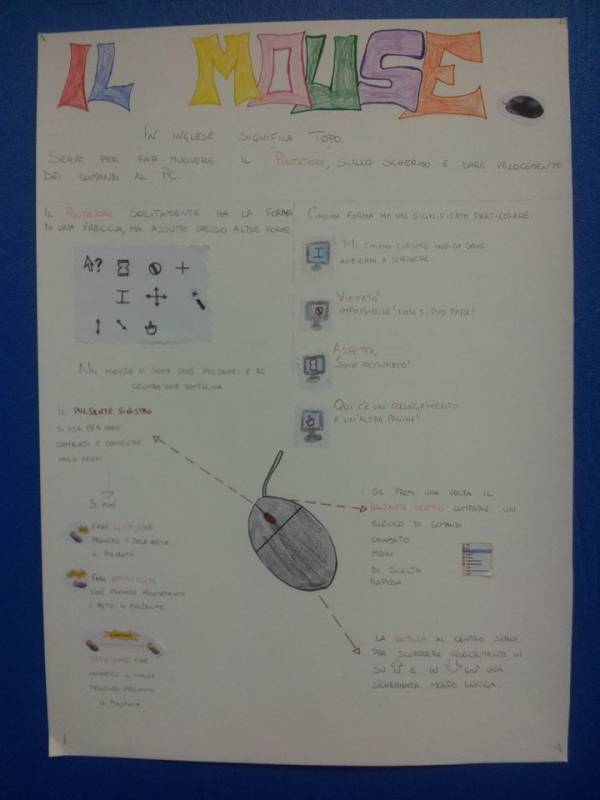 IL MOUSE
IN INGLESE SIGNIFICA TOPO.
SERVE PER FAR MUOVERE IL PUNTATORE, SULLO SCHERMO E DARE VELOCEMENTE
DEI COMANDI AL PC.
IL PUNTATORE SOLITAMENTE HA LA FORMA
DI UNA FRECCIA, MA ASSUME SPESSO ALTRE FORME
CIASCUNA FORMA HA UN SIGNIFICATO PARTICOLARE.
MI CHIAMO CURSORE INDICO DOVE
INIZIERAI A SCRIVERE.
VIETATO!
IMPOSSIBILE! NON SI PUÒ FARE!
ASPETTA,
SONO OCCUPATO!
QUI C'È UN COLLEGAMENTO
A UN'ALTRA PAGINA!
NEL MOUSE CI SONO DUE PULSANTI E AL
CENTRO UNA ROTELLINA
IL PULSANTE SINISTRO
SI USA PER DARE
COMANDI E COMPIERE
VARIE AZIONI
SI PUÒ
FARE CLICK, CIOÈ
PREMERE 1 SOLA VOLTA
IL PULSANTE
FARE
CIOÈ PREMERE VELOCEMENTE
2 VOLTE IL PULSANTE.
TRASCINARE CIOÈ
MUOVERE IL MOUSE
TENENDO PREMUTO
IL PULSANTE
SE PREMI UNA VOLTA IL
PULSANTE DESTRO COMPARE UN
ELENCO DI COMANDI
CHIAMATO
MENU
DI SCELTA
RAPIDA
LA ROTELLA AL CENTRO SERVE
PER SCORRERE VELOCEMENTE IN
SU E IN GIÙ UNA
SCHERMATA MOLTO LUNGA.